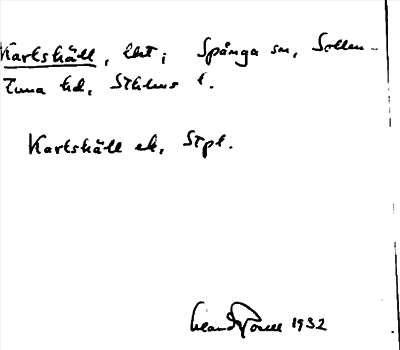 Karlshäll, lht i Spånga sn, Sollen-
tuna hd, Sthlms l.
Karlshäll ek, Stpl.
1932